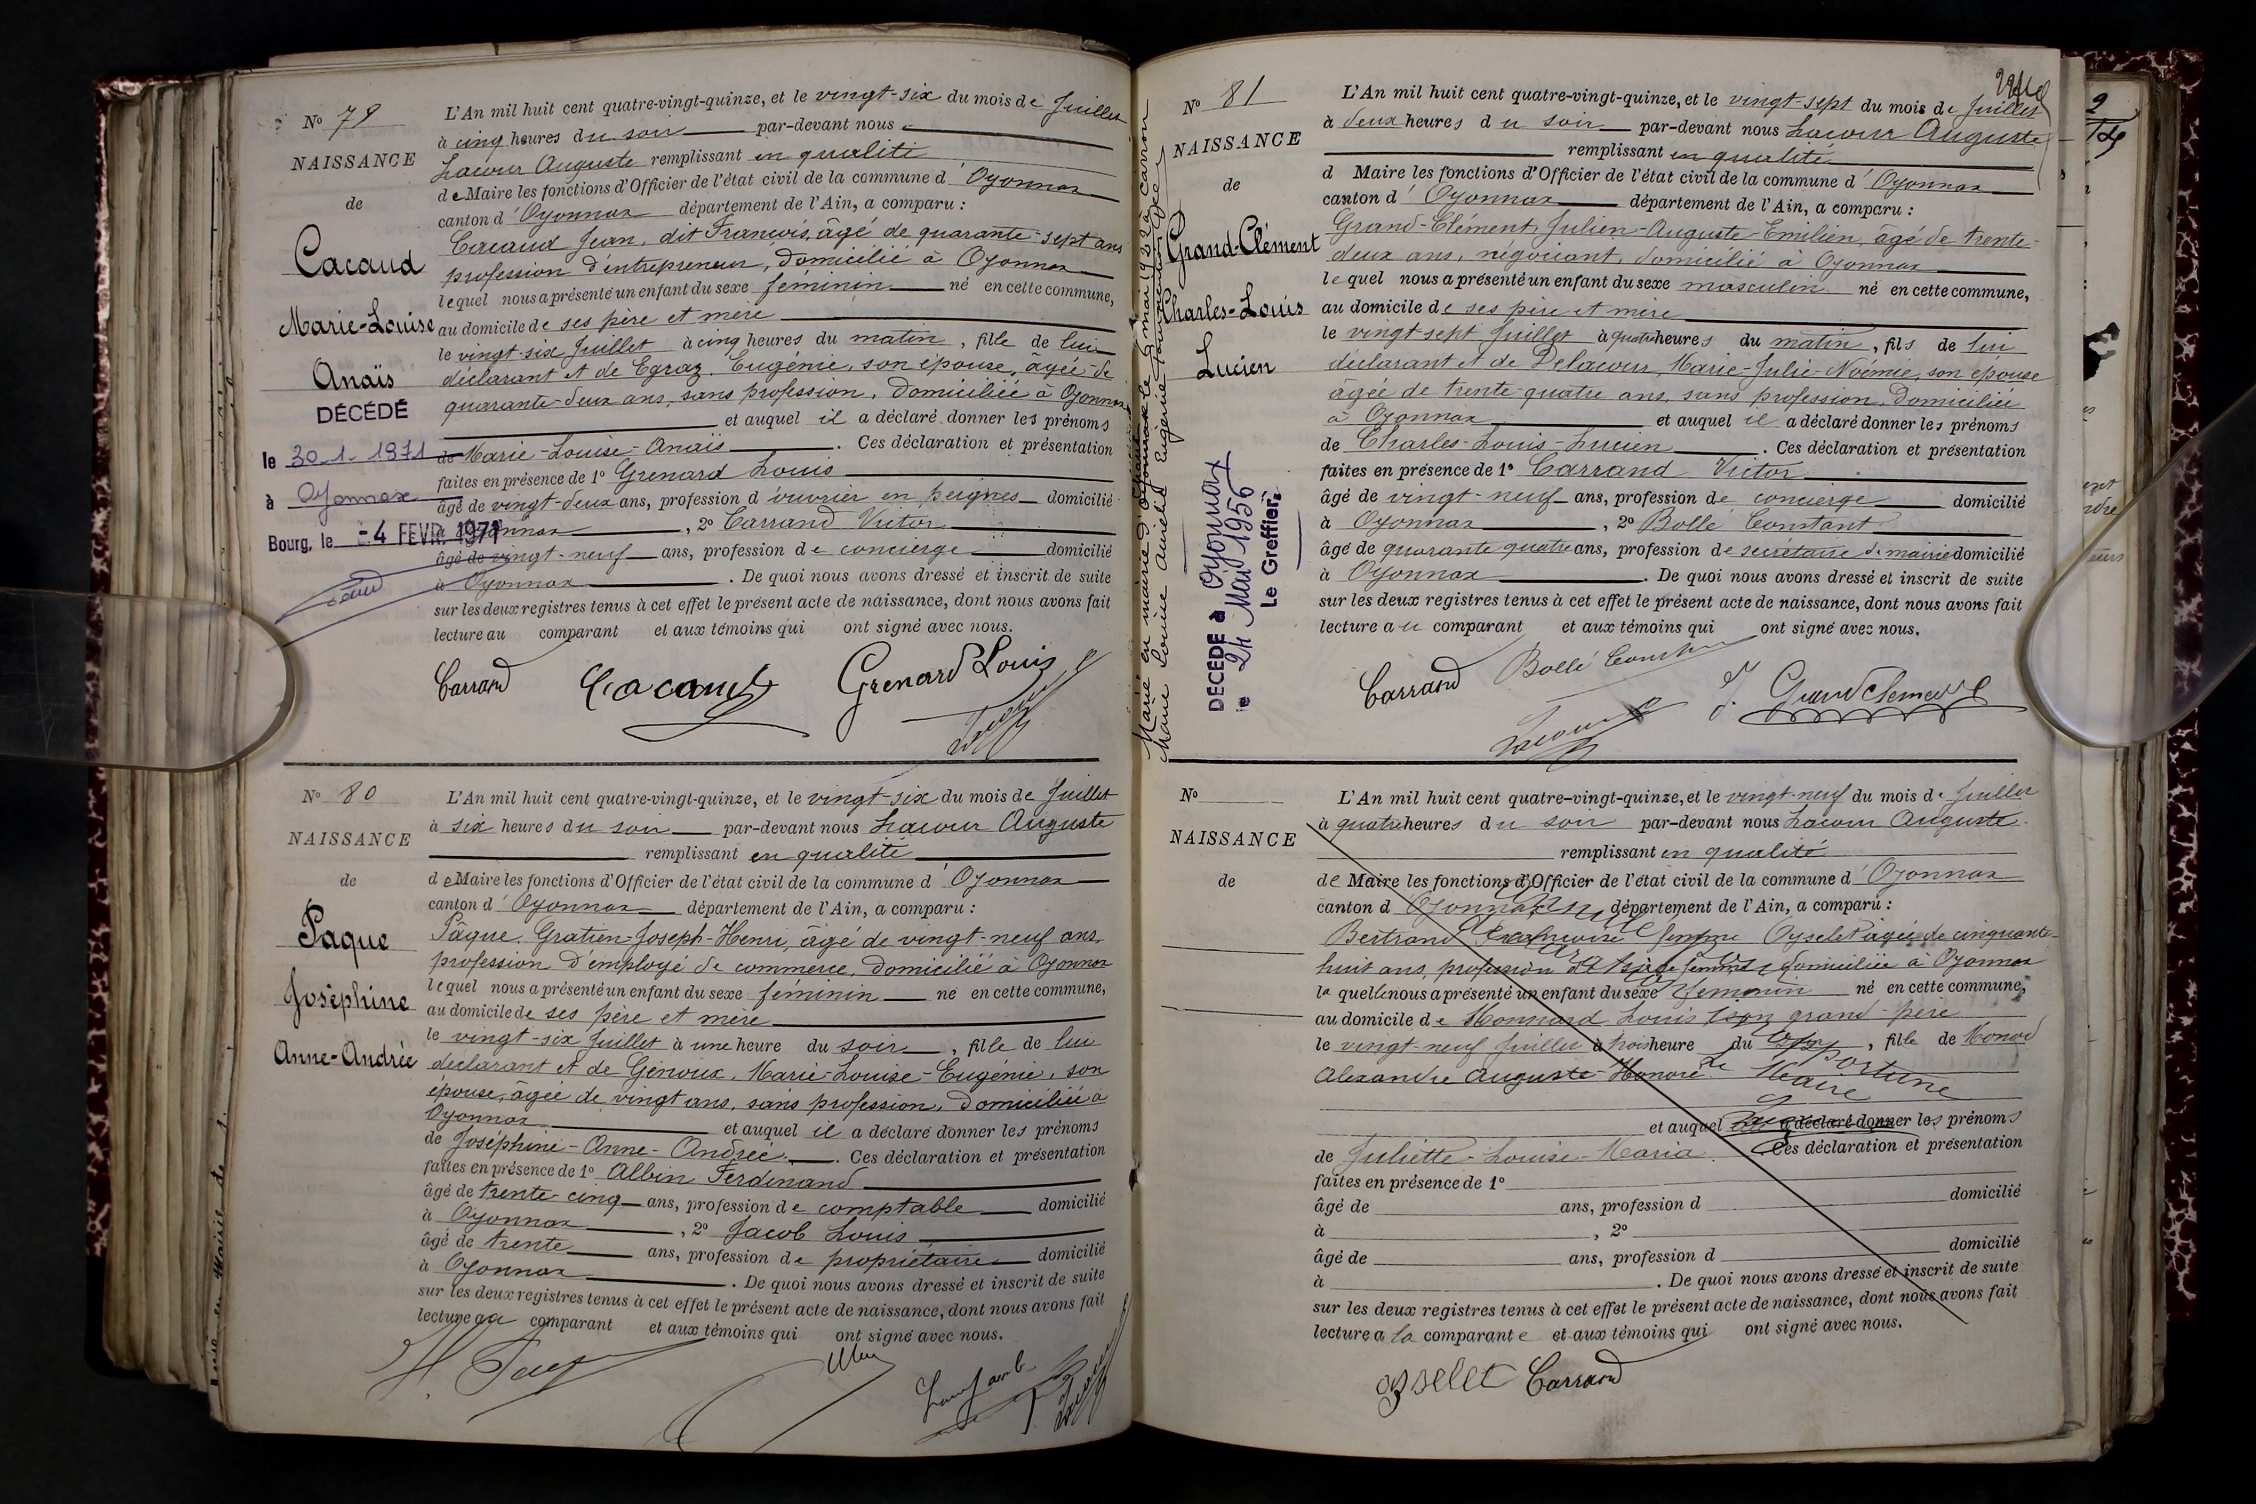 N° 79
NAISSANCE
de
Cacaud
Marie-Louise
Anaïs
DÉCÉDÉ
le 30.1.1971
à Oyonnax
Bourg, le -4 FEVR. 1971
L'An mil huit cent quatre-vingt-quinze, et le vingt-six du mois de Juillet
à cinq heures du soir par-devant nous
Lacour Auguste remplissant en qualité
de Maire les fonctions d'Officier de l'état civil de la commune d'Oyonnax
canton d'Oyonnax département de l'Ain, a comparu :
Cacaud Jean, dit François, âgé de quarante-sept ans
profession d'entrepreneur, domicilié à Oyonnax
lequel nous a présenté un enfant du sexe féminin né en cette commune,
au domicile de ses père et mère
le vingt-six Juillet à cinq heures du matin, fille de lui
déclarant et de Egraz Eugénie, son épouse, âgée de
quarante-deux ans, sans profession, domiciliée à Oyonnax
et auquel il a déclaré donner les prénoms
de Marie-Louise-Anaïs. Ces déclaration et présentation
faites en présence de 1° Grenard Louis
âgé de vingt-deux ans, profession d'ouvrier en peignes domicilié
à Oyonnax, 2° Carrand Victor
âgé de vingt-neuf ans, profession de concierge domicilié
à Oyonnax. De quoi nous avons dressé et inscrit de suite
sur les deux registres tenus à cet effet le présent acte de naissance, dont nous avons fait
lecture au comparant et aux témoins qui ont signé avec nous.
Carrand Cacaud Grenard Louis
Lacour
N° 80
NAISSANCE
de
Pâque
Joséphine
Anne-Andrée
L'An mil huit cent quatre-vingt-quinze, et le vingt-six du mois de Juillet
à six heures du soir par-devant nous Lacour Auguste
remplissant en qualité
de Maire les fonctions d'Officier de l'état civil de la commune d'Oyonnax
canton d'Oyonnax département de l'Ain, a comparu :
Pâque, Gratien-Joseph-Henri, âgé de vingt-neuf ans,
profession d'employé de commerce, domicilié à Oyonnax
lequel nous a présenté un enfant du sexe féminin né en cette commune,
au domicile de ses père et mère
le vingt-six Juillet à une heure du soir, fille de lui
déclarant et de Genoux, Marie-Louise-Eugénie, son
épouse, âgée de vingt ans, sans profession, domiciliée à
Oyonnax et auquel il a déclaré donner les prénoms
de Joséphine-Anne-Andrée. Ces déclaration et présentation
faites en présence de 1° Albin Ferdinand
âgé de trente-cinq ans, profession de comptable domicilié
à Oyonnax, 2° Jacob Louis
âgé de trente ans, profession de propriétaire domicilié
à Oyonnax. De quoi nous avons dressé et inscrit de suite
sur les deux registres tenus à cet effet le présent acte de naissance, dont nous avons fait
lecture au comparant et aux témoins qui ont signé avec nous.
N° 81
NAISSANCE
de
Grand-Clément
Charles-Louis
Lucien
DECEDE à Oyonnax
le 24 Mai 1956
Le Greffier,
L'An mil huit cent quatre-vingt-quinze, et le vingt-sept du mois de Juillet
à deux heures du soir par-devant nous Lacour Auguste
remplissant en qualité
d Maire les fonctions d'Officier de l'état civil de la commune d'Oyonnax
canton d'Oyonnax département de l'Ain, a comparu :
Grand-Clément, Julien-Auguste-Emilien, âgé de trente-
deux ans, négociant, domicilié à Oyonnax
lequel nous a présenté un enfant du sexe masculin né en cette commune,
au domicile de ses père et mère
le vingt sept Juillet à quatre heures du matin, fils de lui
déclarant et de Delacour, Marie-Julie-Noémie, son épouse
âgée de trente-quatre ans, sans profession, domiciliée
à Oyonnax et auquel il a déclaré donner les prénoms
de Charles-Louis-Lucien. Ces déclaration et présentation
faites en présence de 1° Carrand Victor
âgé de vingt-neuf ans, profession de concierge domicilié
à Oyonnax, 2° Bollé Constant
âgé de quarante quatre ans, profession de secrétaire de mairie domicilié
à Oyonnax. De quoi nous avons dressé et inscrit de suite
sur les deux registres tenus à cet effet le présent acte de naissance, dont nous avons fait
lecture au comparant et aux témoins qui ont signé avec nous.
Carrand Bollé Constant J. Grandclement
Lacour
N°
NAISSANCE
de
L'An mil huit cent quatre-vingt-quinze, et le vingt-neuf du mois de Juillet
à quatre heures du soir par-devant nous Lacour Auguste
remplissant en qualité
de Maire les fonctions d'Officier de l'état civil de la commune d'Oyonnax
canton d'Oyonnax département de l'Ain, a comparu :
Bertrand femme Oyselet âgée de cinquante-
huit ans, profession de sage femme, domiciliée à Oyonnax
laquelle nous a présenté un enfant du sexe féminin né en cette commune,
au domicile de Monnard Louis son grand-père
le vingt-neuf Juillet à trois heure du, fille de Monod
Alexandre Auguste Honoré
et auquel a déclaré donner les prénoms
de Juliette-Louise-Maria. Ces déclaration et présentation
faites en présence de 1°
âgé de ans, profession d domicilié
à, 2°
âgé de ans, profession d domicilié
à. De quoi nous avons dressé et inscrit de suite
sur les deux registres tenus à cet effet le présent acte de naissance, dont nous avons fait
lecture a la comparante et aux témoins qui ont signé avec nous.
oyselet Carrand